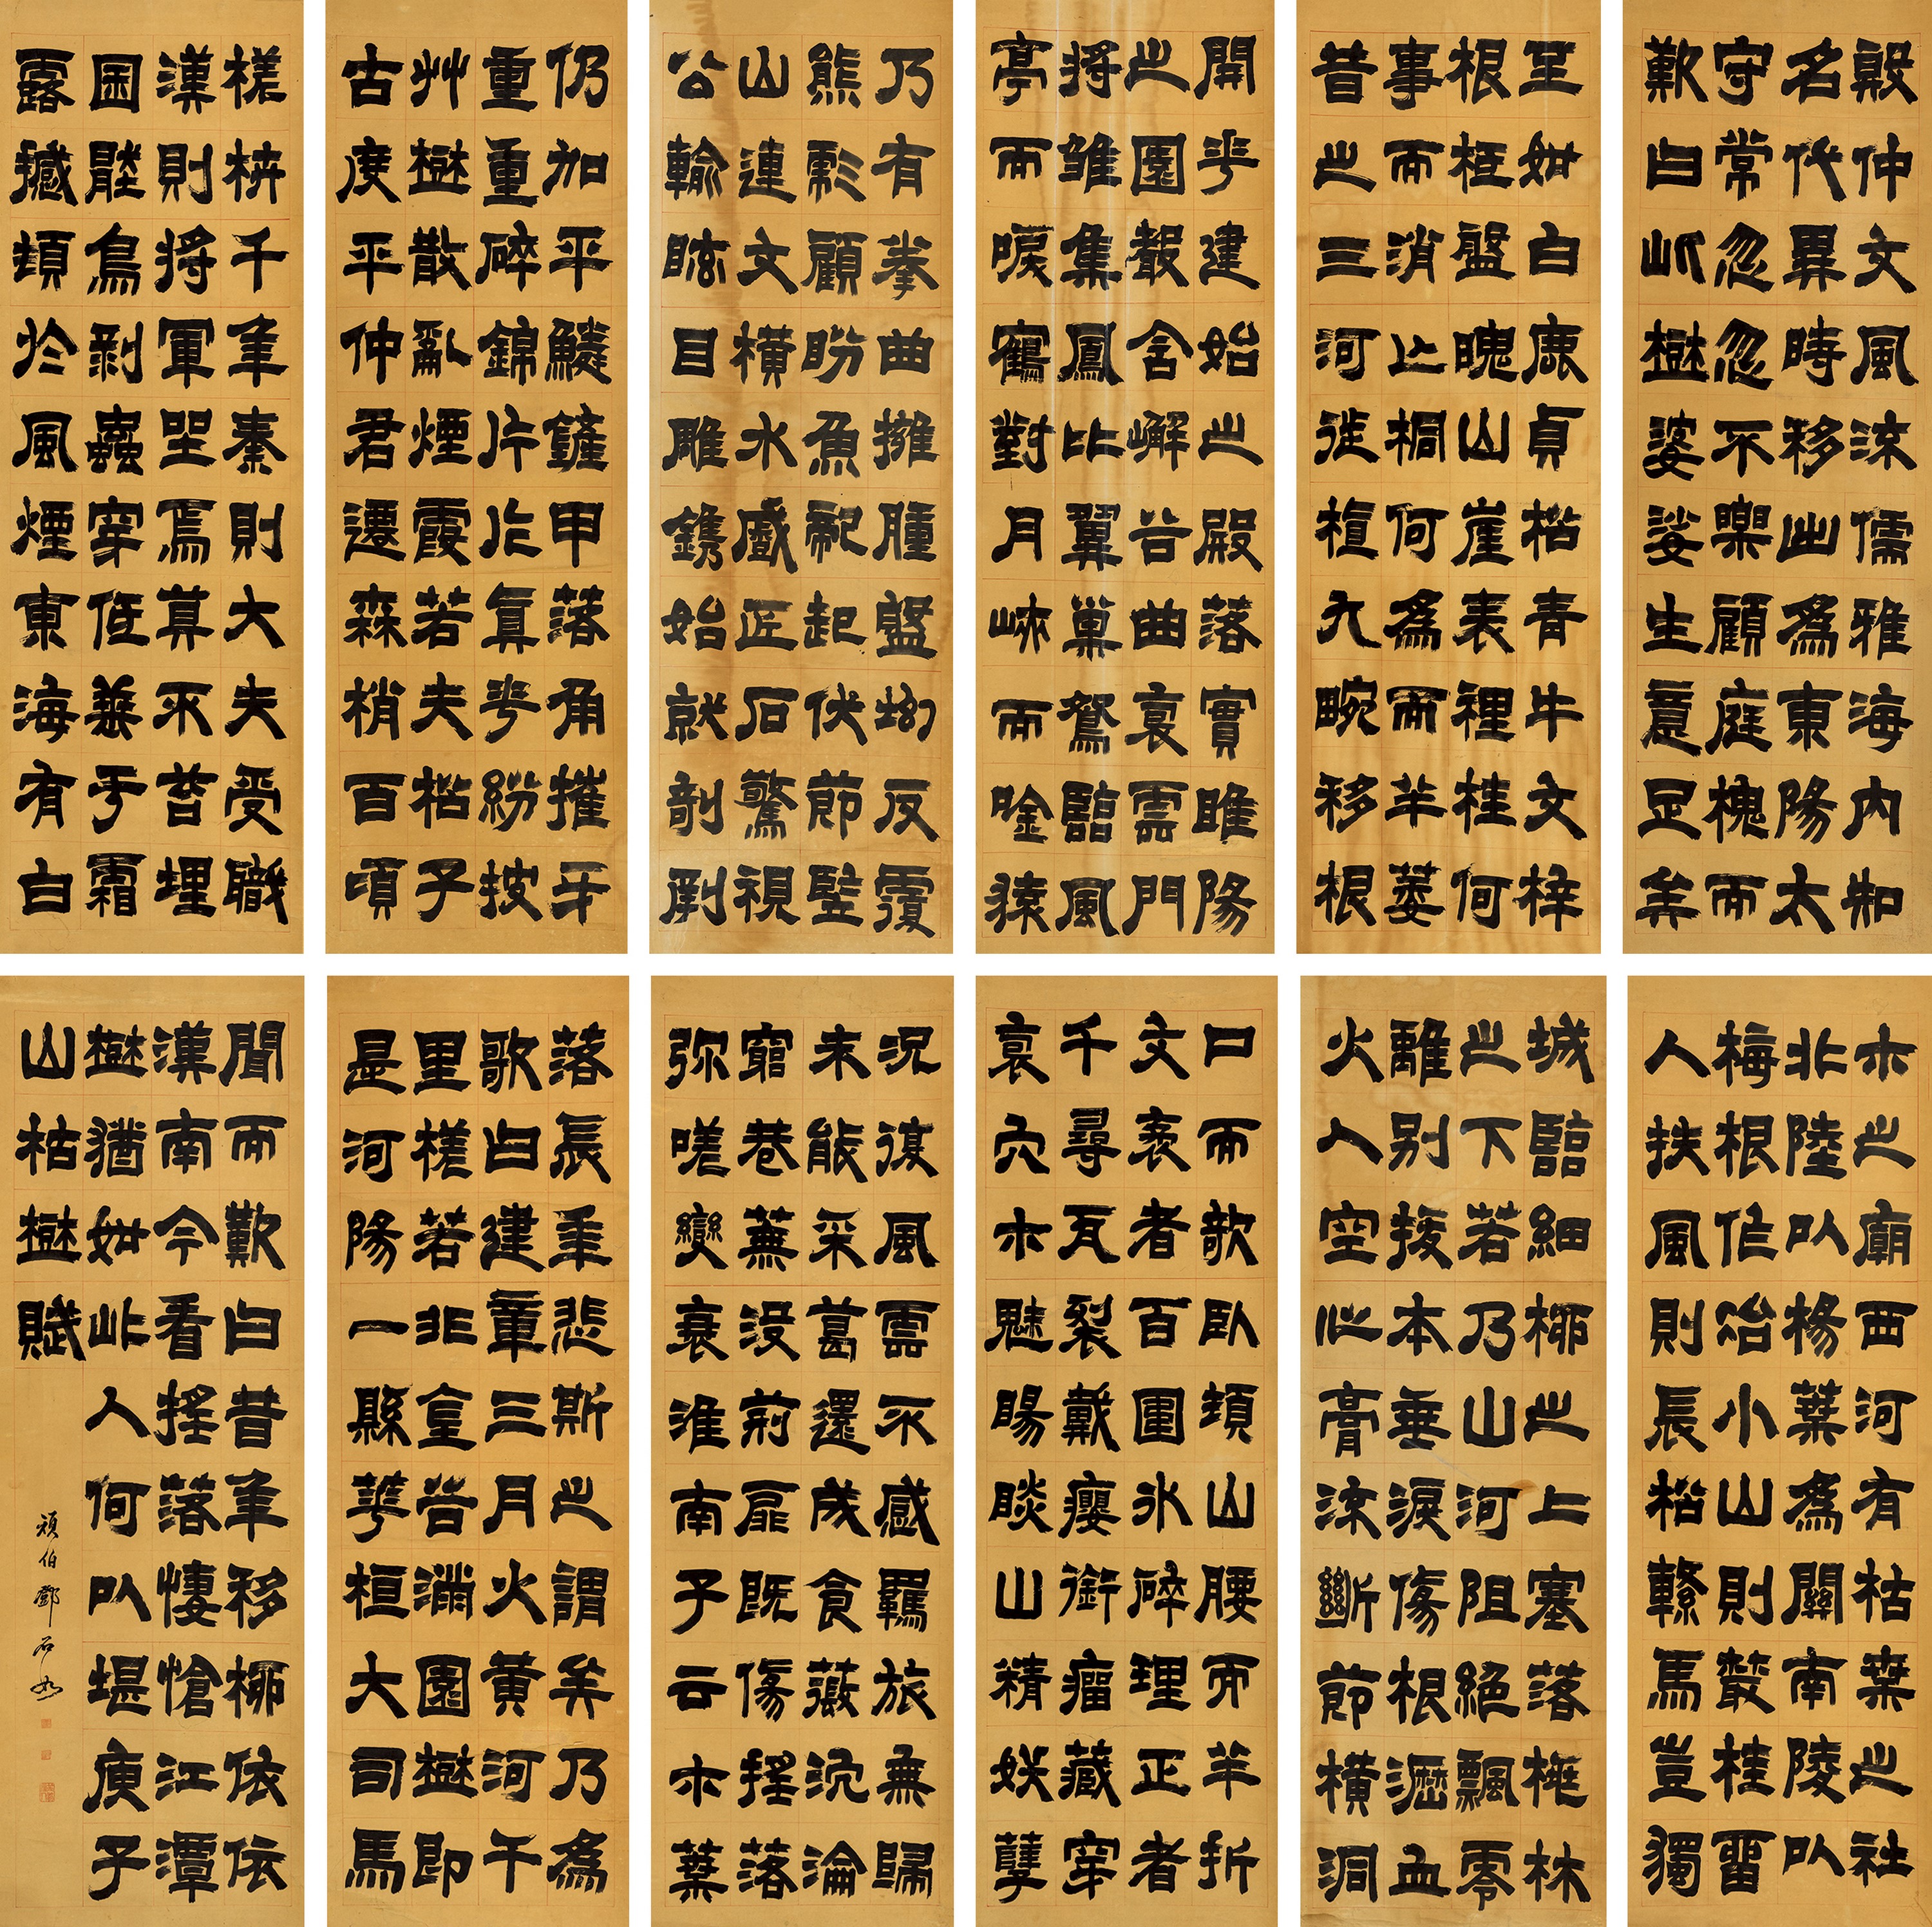 殷仲文風流儒雅海內知
名代異時移出為東陽太
守常忽忽不樂顧庭槐而
歎曰此樹婆娑生意足矣
至如白鹿貞松青牛文梓
根柢盤魄山崖表裡桂何
事而消亡桐何為而半萎
昔之三河徙植九畹移根
開花建始之殿落實睢陽
之園聲含嶰谷曲袌雲門
將雛集鳳比翼巢鴛臨風
亭而唳鶴對月峽而唫猿
乃有拳曲擁腫盤坳反覆
熊彪顧盼魚龍起伏節豎
山連文橫水蹙匠石驚視
公輸眩目雕鐫始就剞劂
仍加平鱗鏟甲落角摧牙
重重碎錦片片真花紛披
艸樹散亂煙霞若夫松子
古度平仲君遷森梢百頃
槎枿千年秦則大夫受職
漢則將軍坐焉莫不苔埋
菌壓鳥剝蟲穿低垂于霜
露撼頓於風煙東海有白
木之廟西河有枯桑之社
北陸以楊葉為關南陵以
梅根作冶小山則叢桂留
人扶風則長松繫馬豈獨
城臨細柳之上塞落桃林
之下若乃山河阻絕飄零
離別拔本垂淚傷根瀝血
火入空心膏流斷節橫洞
口而欹臥頓山腰而半折
文袤者百圍冰碎理正者
千尋瓦裂戴癭銜瘤藏穿
袌穴木魅睗睒山精妖孽
況復風雲不感羈旅無歸
未能采葛還成食薇沉淪
窮巷蕪沒荊扉既傷搖落
彌嗟變衰淮南子云木葉
落長年悲斯之謂矣乃為
歌曰建章三月火黃河千
里槎若非金谷滿園樹即
是河陽一縣花桓大司馬
聞而歎曰昔年移柳依依
漢南今看搖落悽愴江潭
樹猶如此人何以堪庾子
山枯樹賦
頑伯鄧石如